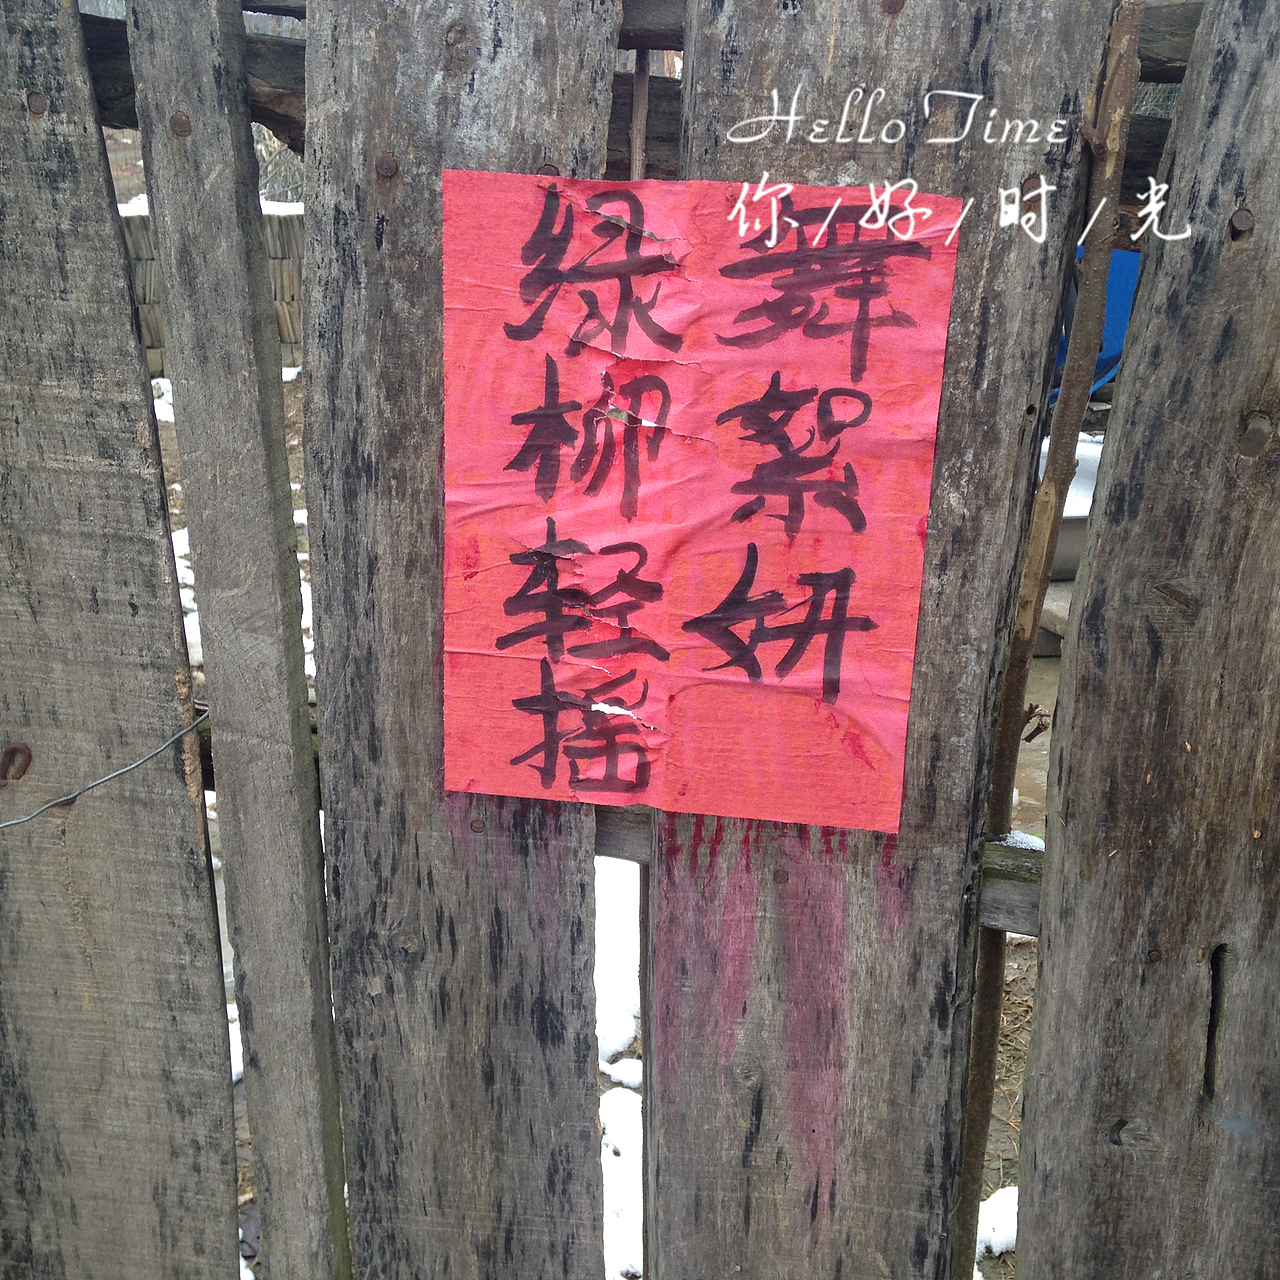 Hello Time
你/好/时/光
绿柳轻摇
舞絮妍